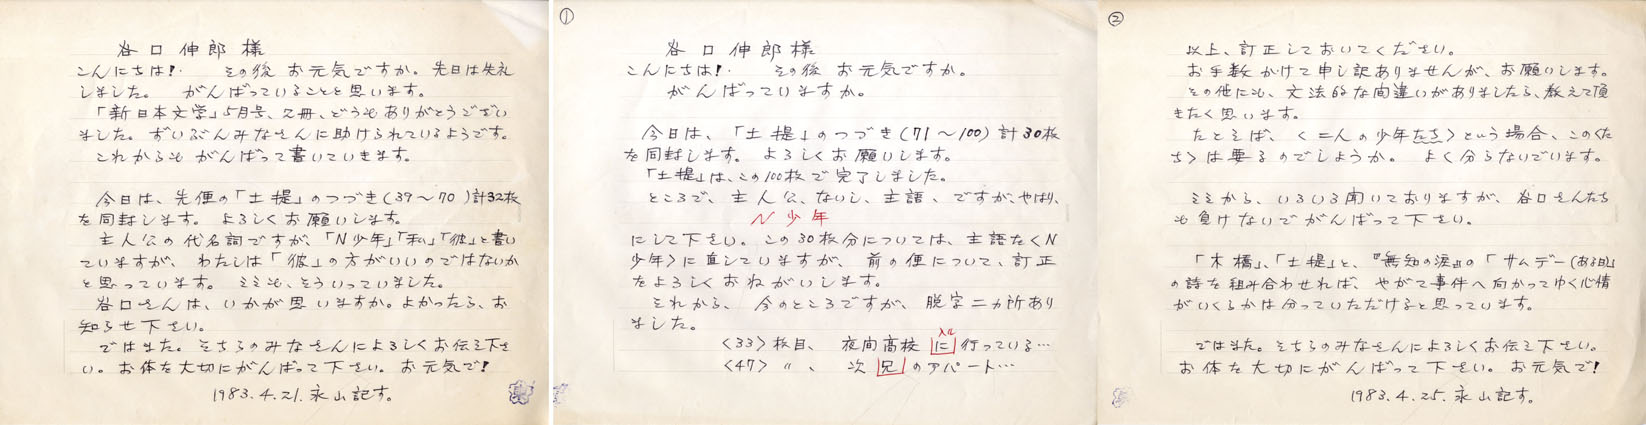 谷口伸郎様
こんにちは！　その後 お元気ですか。先日は失礼
しました。がんばっていることを思います。
「新日本文学」5月号、2冊、どうもありがとうござい
ました。ずいぶんみなさんに助けられているようです。
これからも がんばって書いていきます。
今日は、先便の「土堤」のつづき(39〜70)計32枚
を同封します。よろしくお願いします。
主人公の代名詞ですが、「N少年」「私」「彼」と書い
ていますが、わたしは「彼」の方がいいのではないか
と思っています。ミミも、そういっていました。
谷口さんは、いかが思いますか。よかったら、お
知らせ下さい。
ではまた。そちらのみなさんによろしくお伝え下さ
い。お体を大切にがんばって下さい。お元気で！
1983.4.21.永山記す。
①
谷口伸郎様
こんにちは！　その後 お元気ですか。
がんばっていますか。
今日は、「土堤」のつづき(71〜100)計30枚
を同封します。よろしくお願いします。
「土堤」は、この100枚で完了しました。
ところで、主人公、ないし、主語、ですが、やはり、
N少年
にして下さい。この30枚分については、主語を〈N
少年〉に直していますが、前の便について、訂正
をよろしくおねがいします。
それから、今のところですが、脱字二カ所あり
ました。
入ル
〈33〉枚目、夜間高校 に 行っている…
〈47〉〃、次 兄 のアパート…
②
以上、訂正しておいてください。
お手数かけて申し訳ありませんが、お願いします。
その他にも、文法的な間違いがありましたら、教えて頂
きたく思います。
たとえば、〈二人の少年たち〉という場合、この〈た
ち〉は要るのでしょうか。よく分らないでいます。
ミミから、いろいろ聞いておりますが、谷口さんたち
も負けないでがんばって下さい。
「木橋」、「土堤」と、『無知の涙』の「サムデー(ある日)」
の詩を組み合わせれば、やがて事件へ向かってゆく心情
がいくらかは分っていただけると思っています。
ではまた。そちらのみなさんによろしくお伝え下さい。
お体を大切にがんばって下さい。お元気で！
1983.4.25.永山記す。